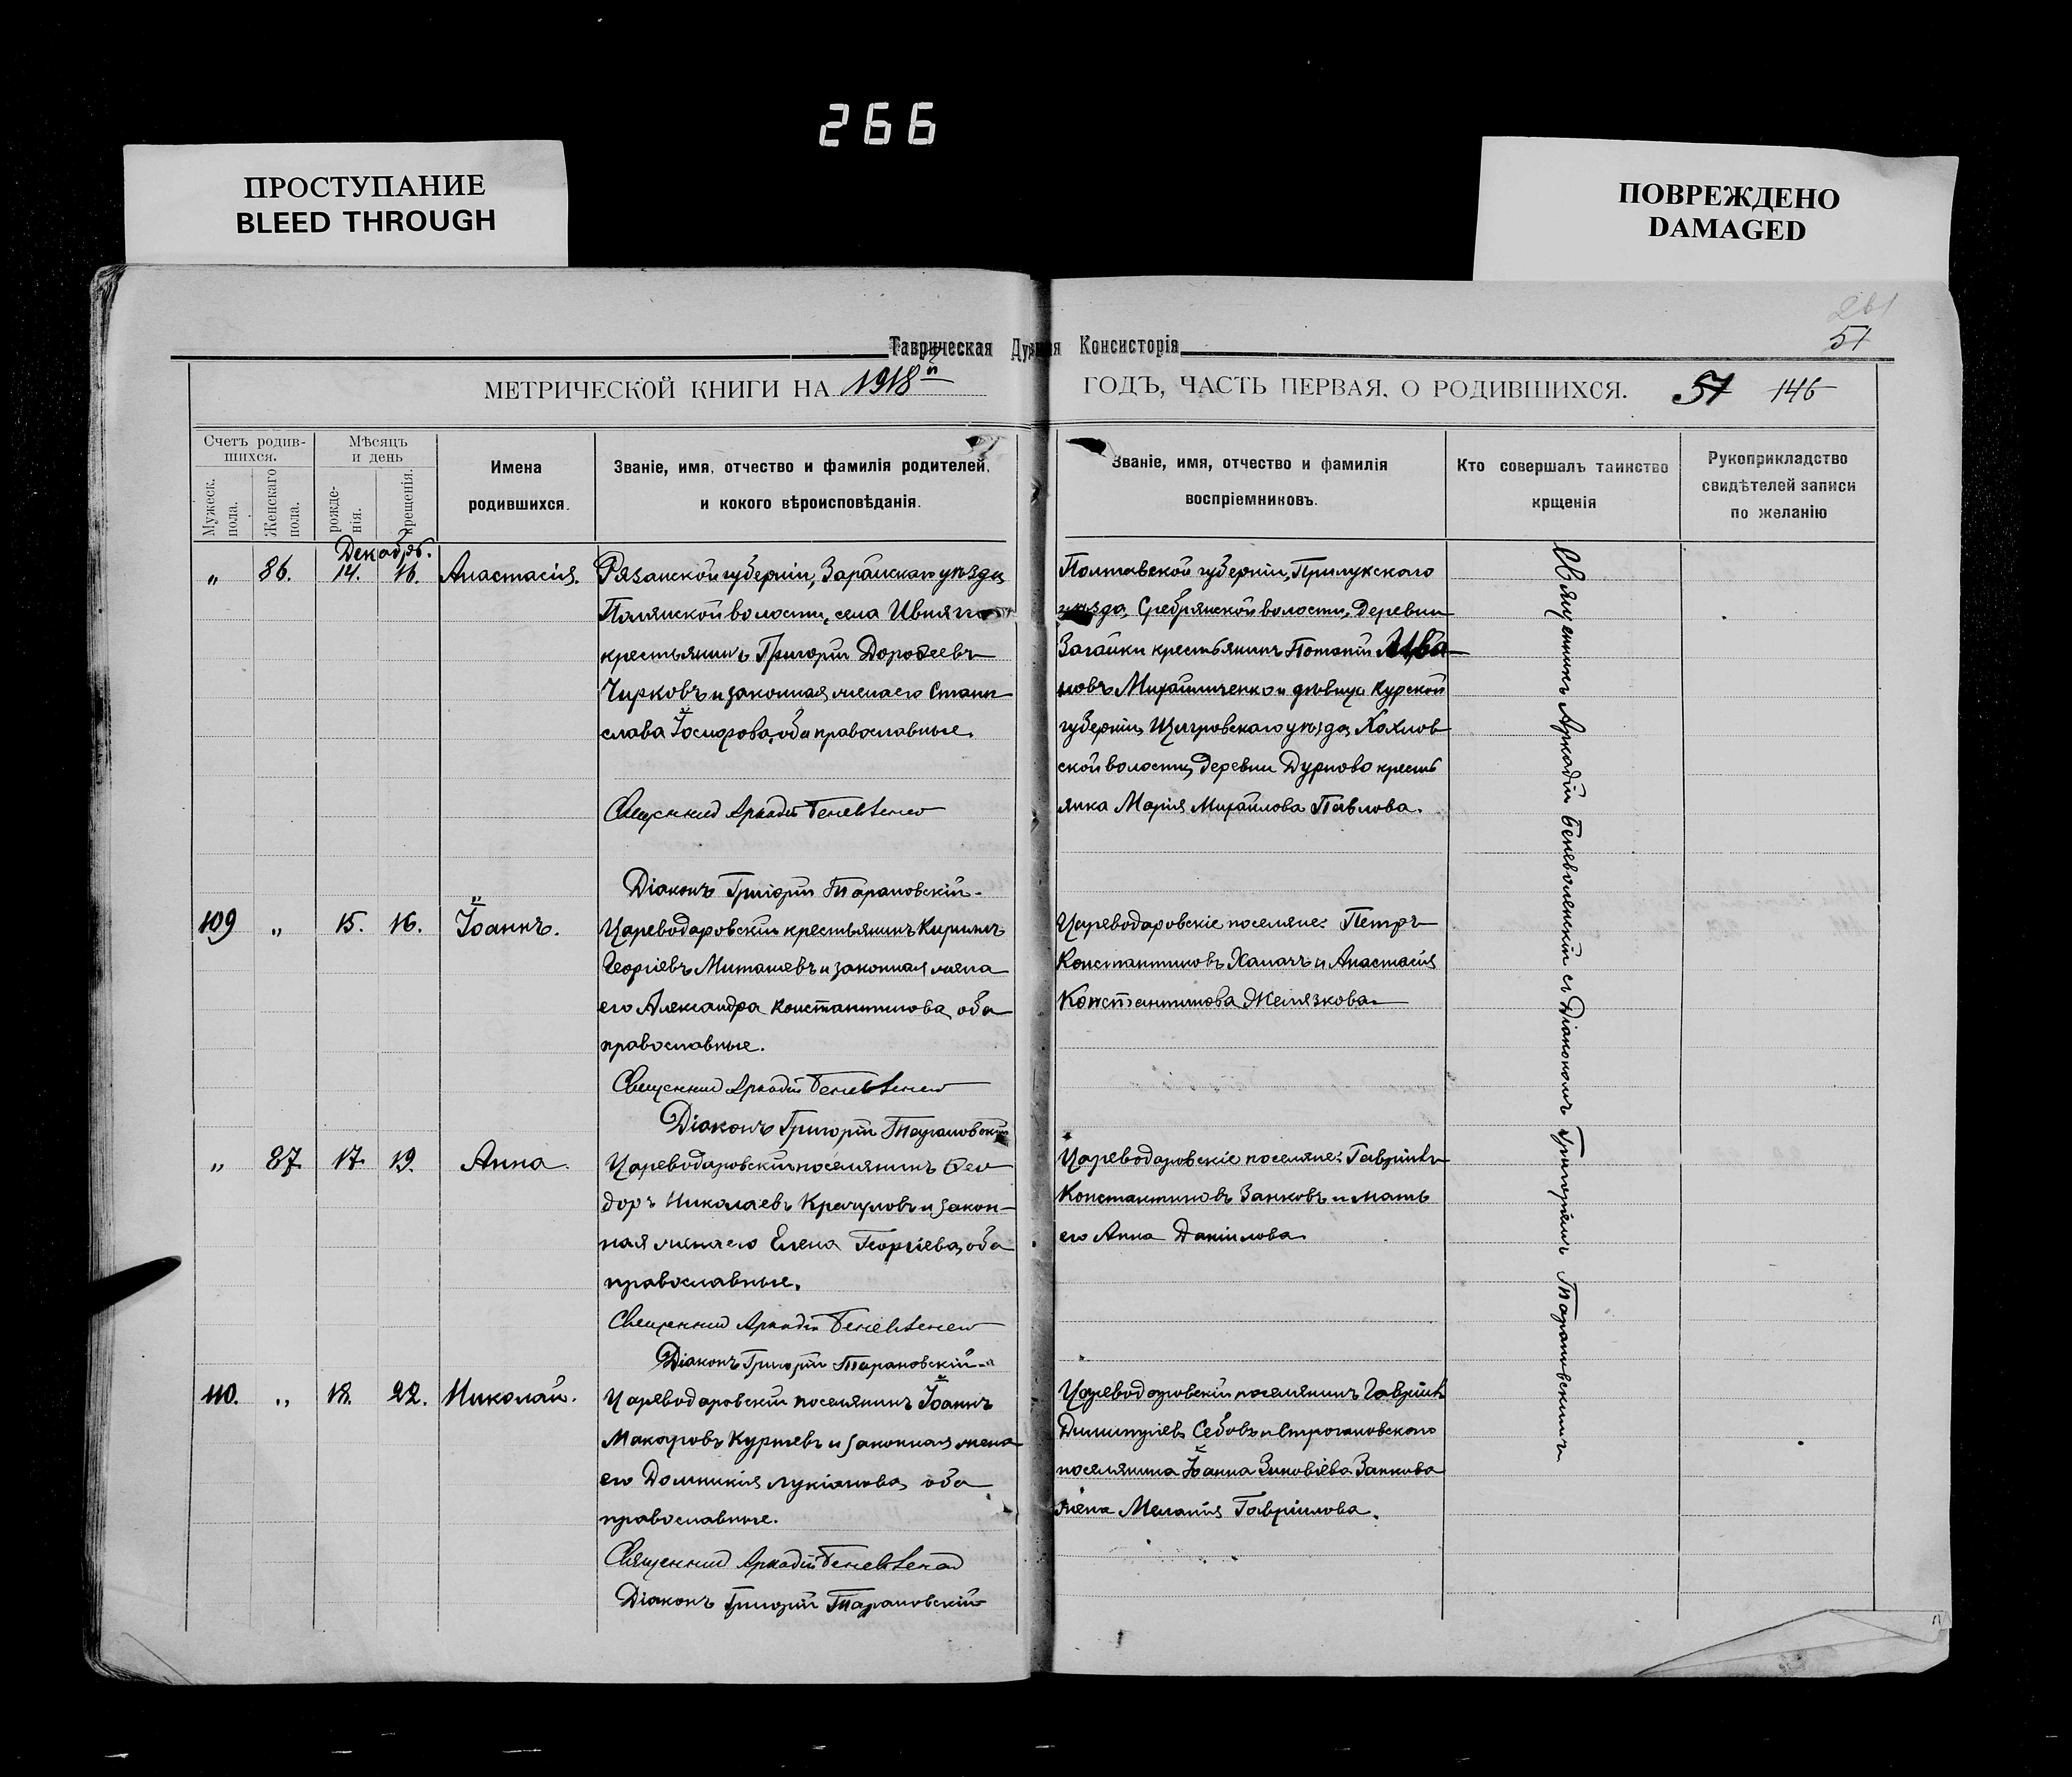 266
ПРОСТУПАНИЕ
BLEED THROUGH
ПОВРЕЖДЕНО
DAMAGED
261
51
Таврическая Духовная Консисторія
МЕТРИЧЕСКОЙ КНИГИ НА 1918й
ГОДЪ, ЧАСТЬ ПЕРВАЯ, О РОДИВШИХСЯ. 57 146
Счетъ родив-
шихся.
Мужеск. пола.
Женскаго пола.
Мѣсяцъ
и день
рожде-
нія.
крещенія.
Имена
родившихся.
Званіе, имя, отчество и фамилія родителей,
и кокого вѣроисповѣданія.
Званіе, имя, отчество и фамилія
воспріемниковъ.
Кто совершалъ таинство
крщенія
Рукоприкладство
свидѣтелей записи
по желанію
Декабрь.
„ 86. 14. 16. Анастасія.
Рязанской губерніи, Зарайскаго уѣзда,
Полянской волости, села
крестьянинъ Григорій Дороѳеевъ
Чирковъ и законная жена его Стани-
слава Іосифова, оба православные.
Священникъ Аркадій
Діаконъ Григорій Тарановскій.
Полтавской губерніи, Прилукскаго
уѣзда, Сребрянской волости, деревни
Загайки крестьянинъ Потапій Ива-
новъ Михайличенко и дѣвица Курской
губерніи, Щигровскаго уѣзда, Хохлов-
ской волости, деревни Дурново кресть-
янка Марія Михайлова Павлова.
109 „ 15. 16. Іоаннъ.
Цареводаровскій крестьянинъ Кириллъ
Георгіевъ Миташевъ и законная жена
его Александра Константинова, оба
православные.
Священникъ Аркадій
Діаконъ Григорій Тарановскій
Цареводаровскіе поселяне: Петръ
Константиновъ и Анастасія
Константинова Желязкова.
„ 87. 17. 19. Анна.
Цареводаровскій поселянинъ Ѳео-
доръ Николаевъ Крачуловъ и закон-
ная жена его Елена Георгіева, оба
православные.
Священникъ Аркадій
Діаконъ Григорій Тарановскій.
Цареводаровскіе поселяне: Гавріилъ
Константиновъ Занковъ и мать
его Анна Даніилова.
110. „ 18. 22. Николай.
Цареводаровскій поселянинъ Іоаннъ
Макаровъ Куртевъ и законная жена
его Домникія Лукіанова, оба
православные.
Священникъ Аркадій
Діаконъ Григорій Тарановскій
Цареводаровскій поселянинъ Гавріилъ
Димитріевъ Себовъ и Строгановскаго
поселянина Іоанна Зиновіева Занкова
жена Меланія Гавріилова.
Священникъ Аркадій Беневоленскій съ Діакономъ Григоріемъ Тарановскимъ